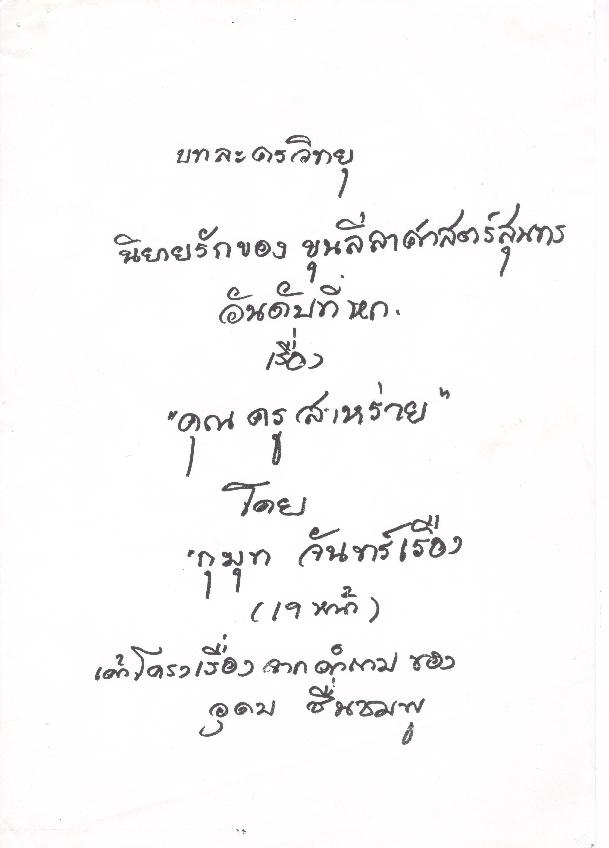 บทละครวิทยุ
นิยายรักของ ขุนลีลาศาสตร์สุนทร
อันดับที่หก.
เรื่อง
"คุณครูสะเหร่าย"
โดย
"กุมุท จันทร์เรือง
(19 หน้า)
เค้าโครงเรื่อง จาก ของ
อุดม ชื่นชมพู